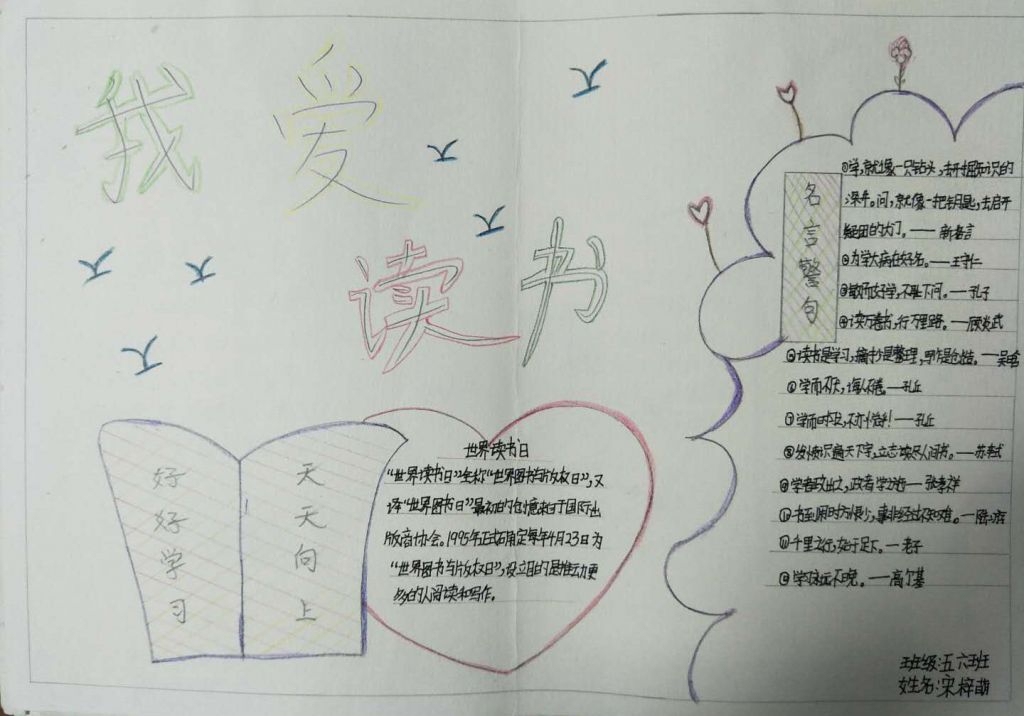 我爱
读书
好好学习
天天向上
世界读书日
“世界读书日”全称“世界图书与版权日”,又
译“世界图书日”最初的创意来自于国际出
版商协会。1995年正式确定每年4月23日为
“世界图书与版权日”,设立目的是推动更
多的人阅读和写作。
名言警句
①学,就像一只钻头,去开掘知识的
深井。问,就像一把钥匙,去启开
疑团的大门。——
②为学大病在好名。——王守仁
③敏而好学,不耻下问。——孔子
④读万卷书,行万里路。——顾炎武
⑤读书是学习,摘抄是整理,写作是创造。——吴晗
⑥学而不厌,诲人不倦。——孔丘
⑦学而时习之,不亦说乎!——孔丘
⑧发愤识遍天下字,立志读尽人间书。——苏轼
⑨——张孝祥
书到用时方恨少,事非经过不知难。——陆游
千里之行,始于足下。——老子
学习永远不晚。——高尔基
班级:五六班
姓名:宋梓萌